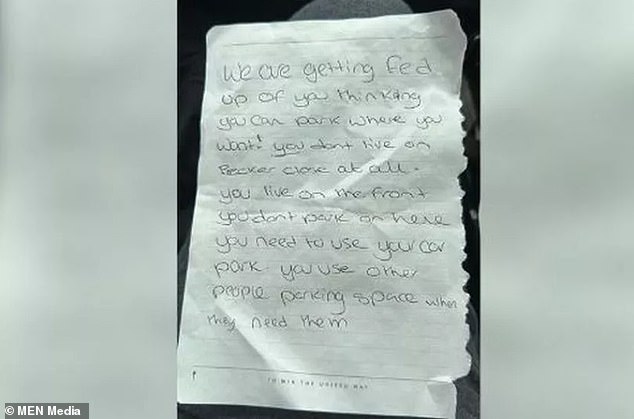 We are getting fed
up of you thinking
you can park where you
want! you dont live on
Becker close at all.
you live on the front
you dont park on here
you need to use your car
park. you use other
people parking space when
they need them
TO WIN THE UNITED WAY
MEN Media